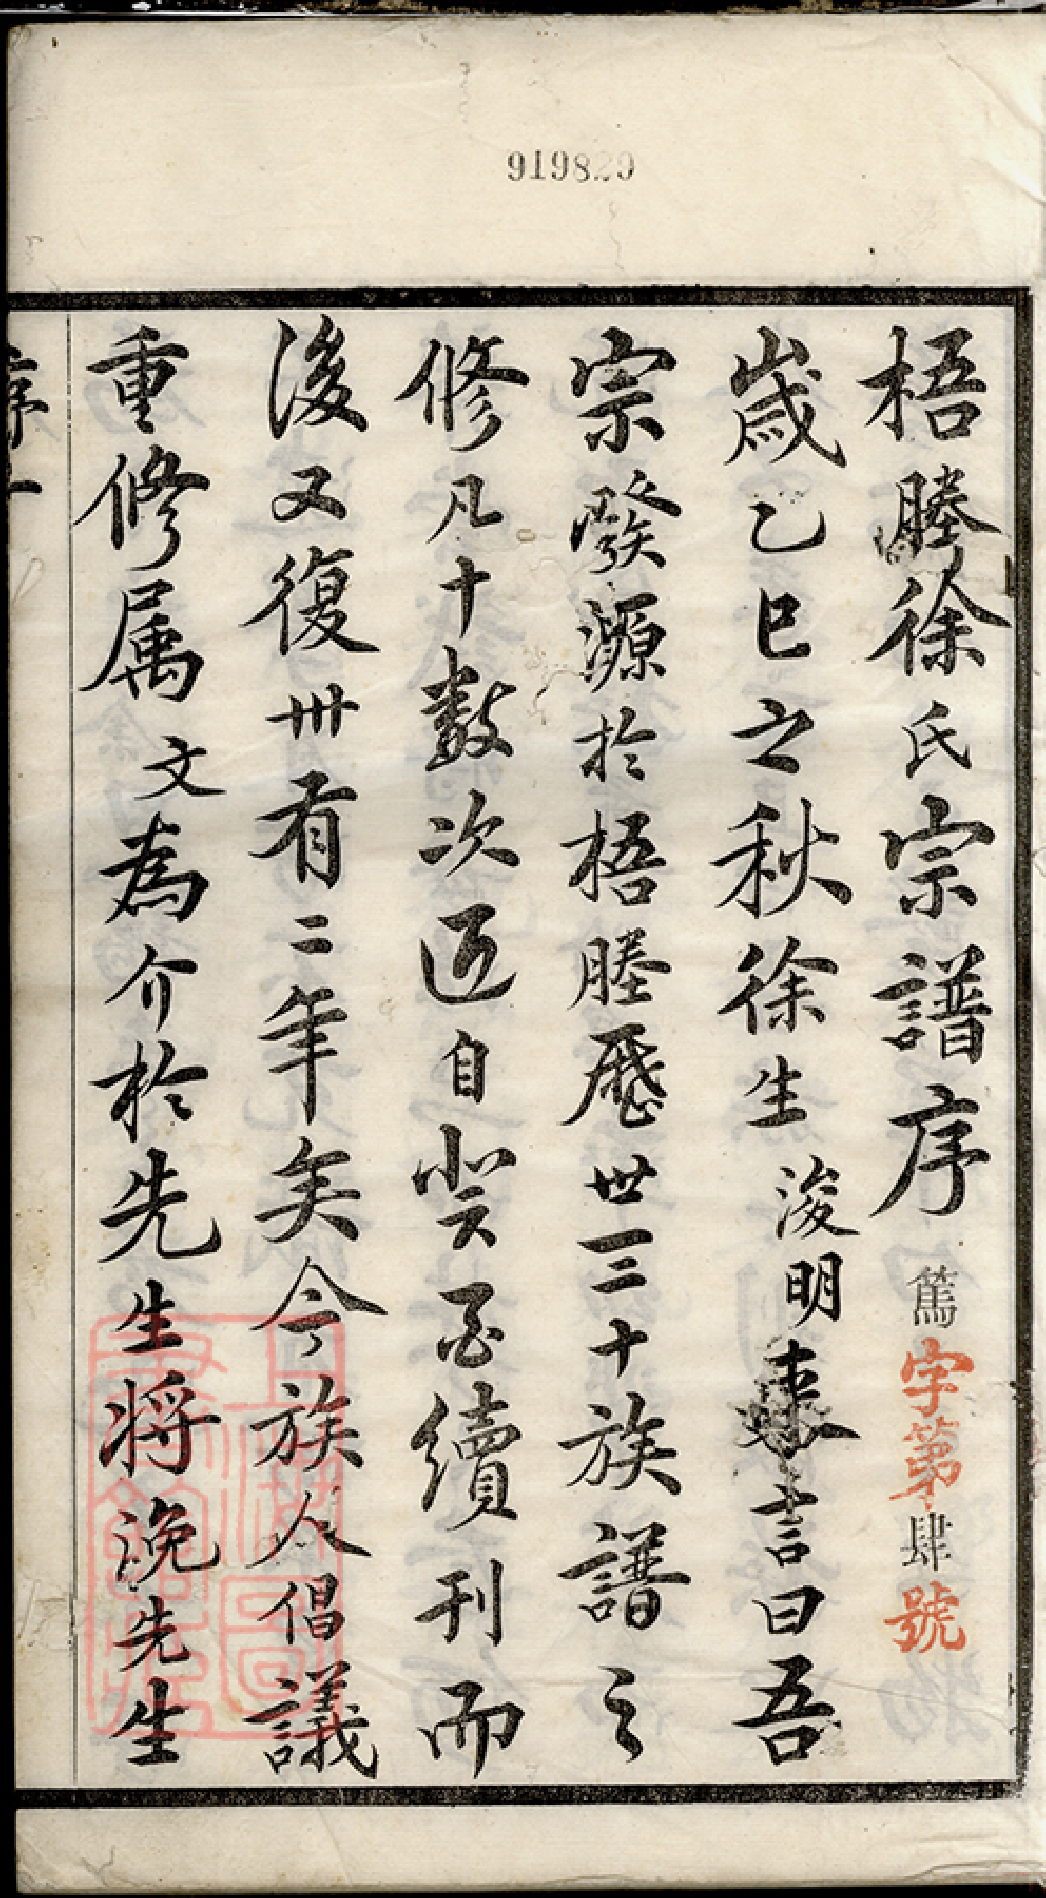 919829
梧塍徐氏宗譜序 篤字第肆號
歲乙巳之秋徐生浚明来言曰吾
宗發源於梧塍歷世三十族譜之
修凡十數次迺自癸酉續刊而
後又復卅有二年矣今族人倡議
重修属文為介於先生將浼先生
序 一